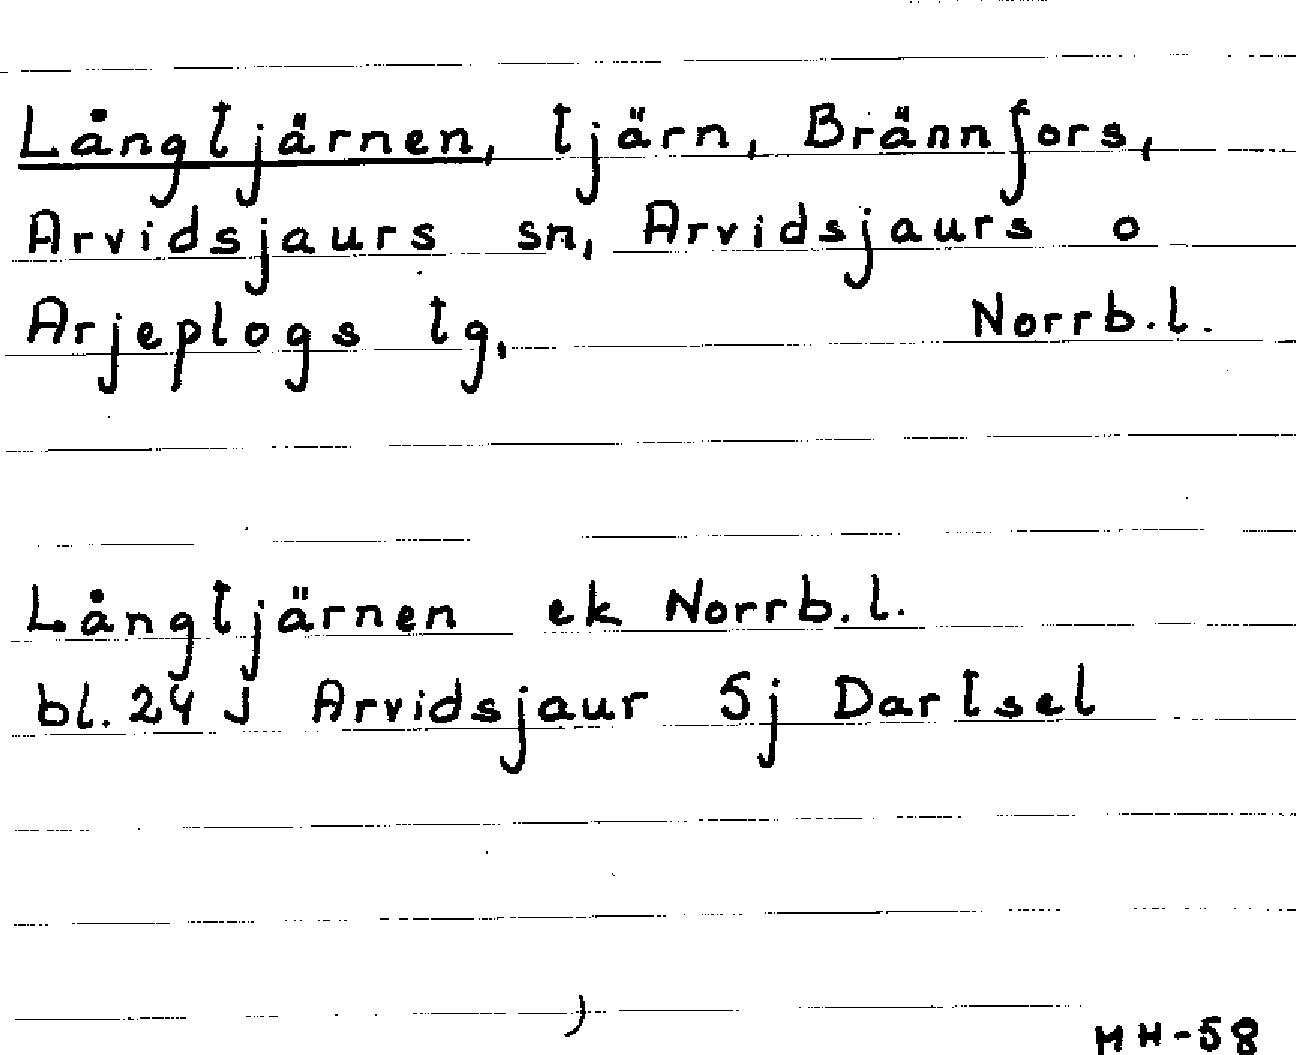 Långtjärnen, tjärn, Brännfors,
Arvidsjaurs sn, Arvidsjaurs o
Arjeplogs tg, Norrb.l.
Långtjärnen ek Norrb.l.
bl. 24 J Arvidsjaur 5j Dartsel
MH-58